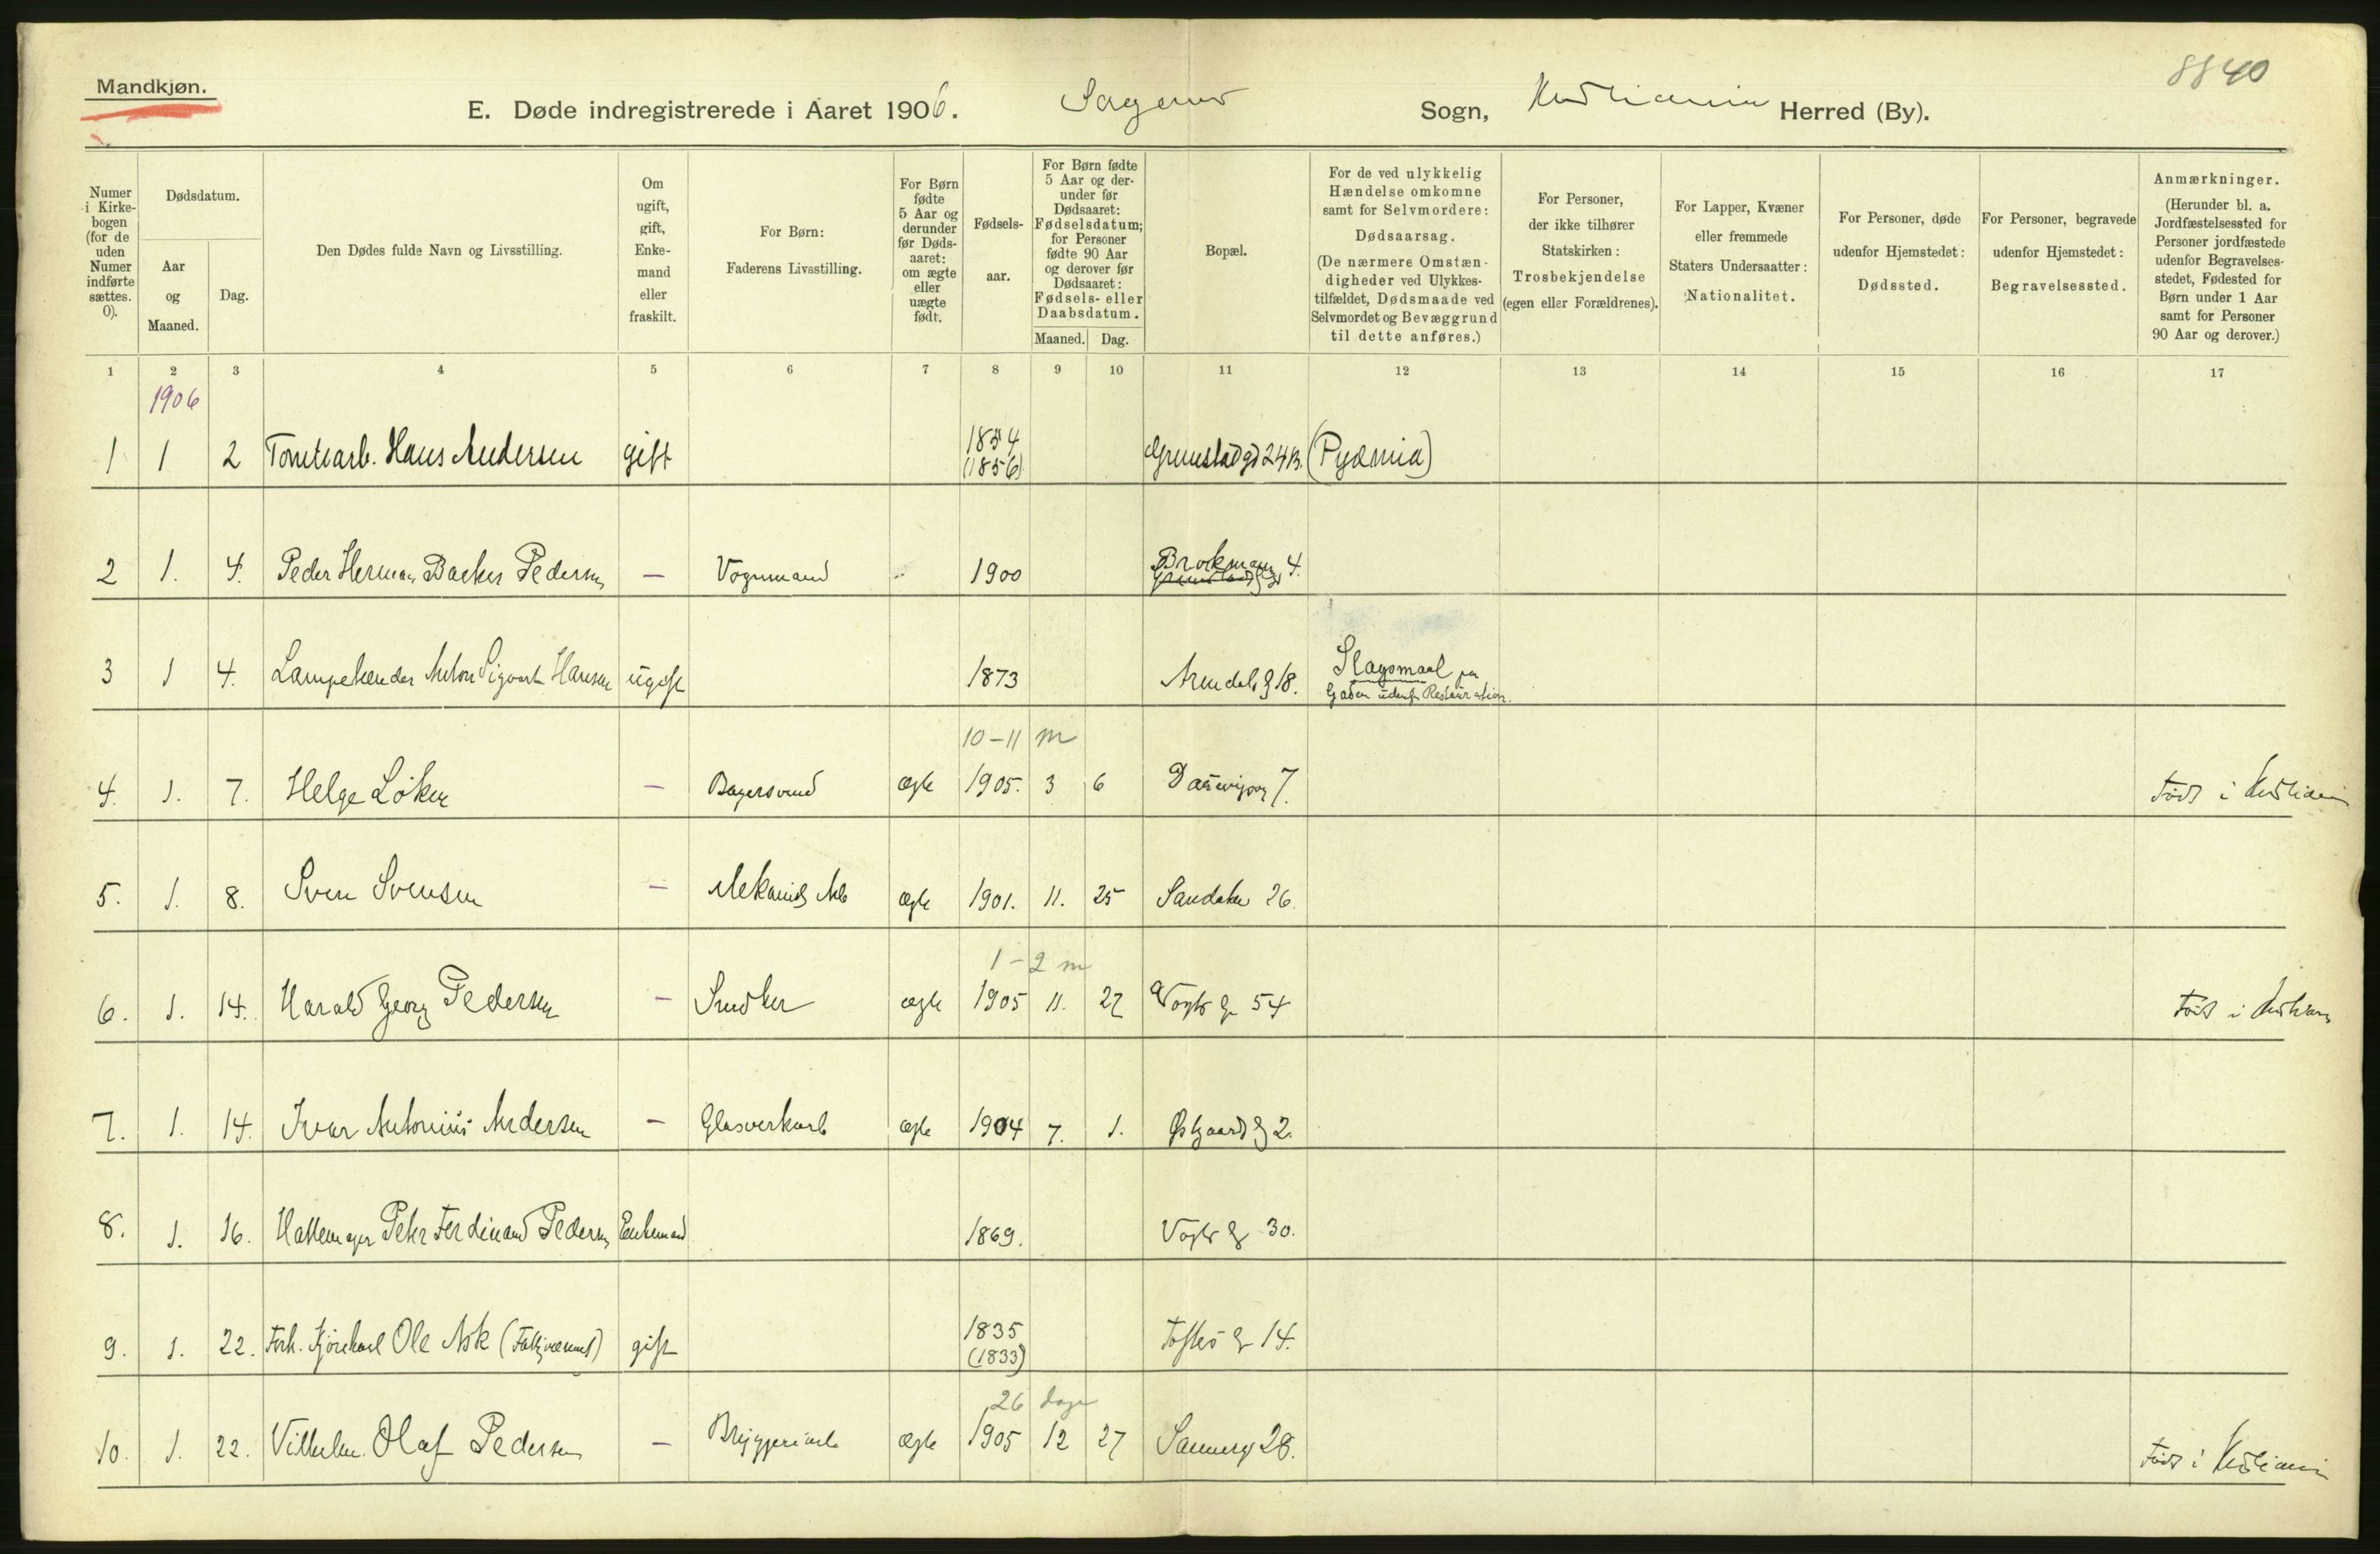 8840
Mandkjøn.
E. Døde indregistrerede i Aaret 1906. Sagene Sogn, Kristiania Herred (By).
Numer i Kirkebogen (for de uden Numer indførte sættes. 0).
Dødsdatum.
Aar og Maaned.
Dag.
Den Dødes fulde Navn og Livsstilling.
Om ugift, gift, Enkemand eller fraskilt.
For Børn: Faderens Livsstilling.
For Børn fødte 5 Aar og derunder før Dødsaaret: om ægte eller uægte født.
Fødselsaar.
For Børn fødte 5 Aar og derunder før Dødsaaret: Fødselsdatum; for Personer fødte 90 Aar og derover før Dødsaaret: Fødsels- eller Daabsdatum.
Maaned. Dag.
Bopæl.
For de ved ulykkelig Hændelse omkomne samt for Selvmordere: Dødsaarsag. (De nærmere Omstændigheder ved Ulykkestilfældet, Dødsmaade ved Selvmordet og Bevæggrund til dette anføres.)
For Personer, der ikke tilhører Statskirken: Trosbekjendelse (egen eller Forældrenes).
For Lapper, Kvæner eller fremmede Staters Undersaatter: Nationalitet.
For Personer, døde udenfor Hjemstedet: Dødssted.
For Personer, begravede udenfor Hjemstedet: Begravelsessted.
Anmærkninger. (Herunder bl. a. Jordfæstelsessted for Personer jordfæstede udenfor Begravelsesstedet, Fødested for Børn under 1 Aar samt for Personer 90 Aar og derover.)
1 2 3 4 5 6 7 8 9 10 11 12 13 14 15 16 17
1906
1 1 2 Tomtearb. Hans Andersen gift 1854 (1856) Grimstadgd 24 B. (Pyæmia)
2 1. 4. Peder Herman Backer Pedersen — Vognmand 1900 Brokmansg 4.
3 1 4. Lampetænder Anton Sigvart Hansen ugift 1873 Arendalsg 18. Slagsmaal paa
Gaden udenfr Restauration.
10-11 m
4. 1. 7. Helge Löken — Bagersvend ægte 1905. 3 6 7. Föds i Kristiania
5. 1. 8. Sven Svensen — Mekanisk Arb ægte 1901. 11. 25 Sandaker 26.
1-2 m
6. 1. 14. Harald Georg Pedersen — Snedker ægte 1905 11. 27 Vogts g 54 Föds i Kristiania
7. 1. 14. Ivar Antonius Andersen — Glasverkarb ægte 1904 7. 1. Østgaards g 2.
8. 1. 16. Hattemager Peter Ferdinand Pedersen Enkemand 1869. Vogts g 30.
9. 1. 22. Forh. Kjørekarl Ole Ask gift 1835 (1833) Toftes g 14.
26 dage
10. 1. 22. Vilhelm Olaf Pedersen — Bryggeriarb ægte 1905 12 27 Sannerg 28. Föds i Kristiania